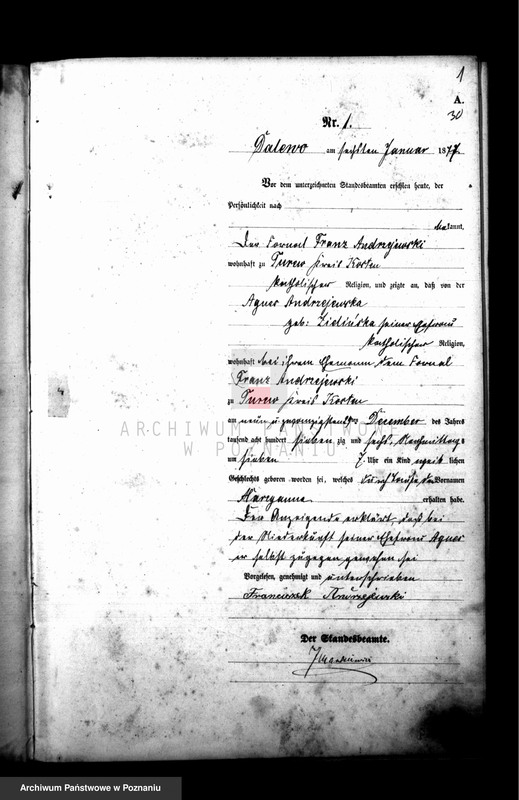 1
A.
30
Nr. 1.
Dalewo am sechsten Januar 1877
Vor dem unterzeichneten Standesbeamten erschien heute, der
Persönlichkeit nach
bekannt,
Der Fornal Franz Andrzejewski
wohnhaft zu Turew Kreis Kosten
katholischer Religion, und zeigte an, daß von der
Agnes Andrzejewska
geb: seiner Ehefrau
katholischer Religion,
wohnhaft bei ihrem Ehemann dem Fornal
Franz Andrzejewski
zu Turew Kreis Kosten
am neun u zwanzigsten December des Jahres
tausend acht hundert siebenzig und sechs, Nachmittags
um sieben 7. Uhr ein Kind weiblichen
Geschlechts geboren worden sei, welches Vornamen
Maryanna erhalten habe.
Der Anzeigende erklärt, daß bei
der Niederkunft seiner Ehefrau Agnes
er selbst zugegen gewesen sei
Vorgelesen, genehmigt und unterschrieben
Franciszek Andrzejewski
Der Standesbeamte.
ARCHIWUM PAŃSTWOWE
W POZNANIU
Archiwum Państwowe w Poznaniu